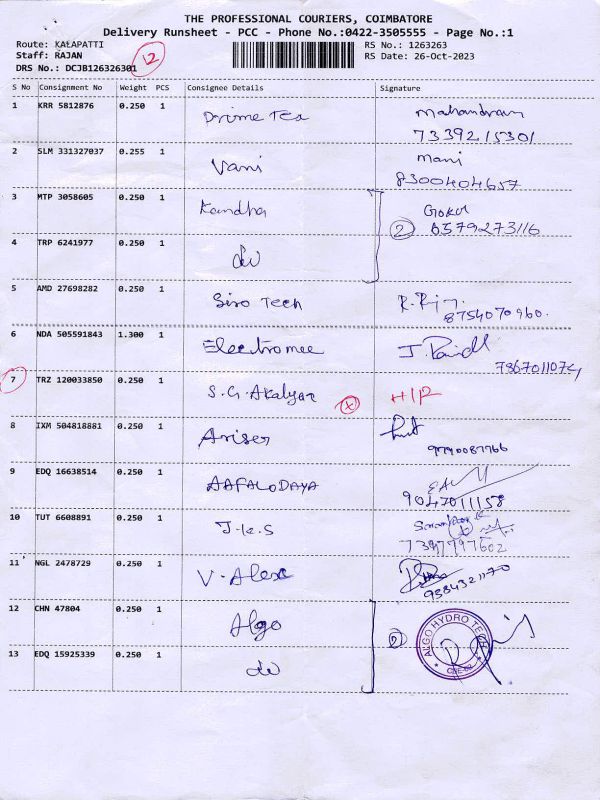 THE PROFESSIONAL COURIERS, COIMBATORE
Delivery Runsheet - PCC - Phone No.:0422-3505555 - Page No.:1
Route: KALAPATTI RS No.: 1263263
Staff: RAJAN RS Date: 26-Oct-2023
DRS No.: DCJB126326301 12
S No Consignment No Weight PCS Consignee Details Signature
1 KRR 5812876 0.250 1 Prime Tea Mahandran
7339215301
2 SLM 331327037 0.255 1 Vani Mani
8300404657
3 MTP 3058605 0.250 1 Kandha Gokul
2 6579273116
4 TRP 6241977 0.250 1 do
5 AMD 27698282 0.250 1 Siro Tech
8754070960.
6 NDA 505591843 1.300 1 Electromec
7867011074
7 TRZ 120033850 0.250 1 S.G. Akalyaa X
8 IXM 504818881 0.250 1 Ariser
9790087766
9 EDQ 16638514 0.250 1 AAFALODAYA
9047011158
10 TUT 6608891 0.250 1 J.K.S
7397797602
11 NGL 2478729 0.250 1 V. Alex
9384321170
12 CHN 47804 0.250 1 Algo
2 ALGO HYDRO TECH
13 EDQ 15925339 0.250 1 do